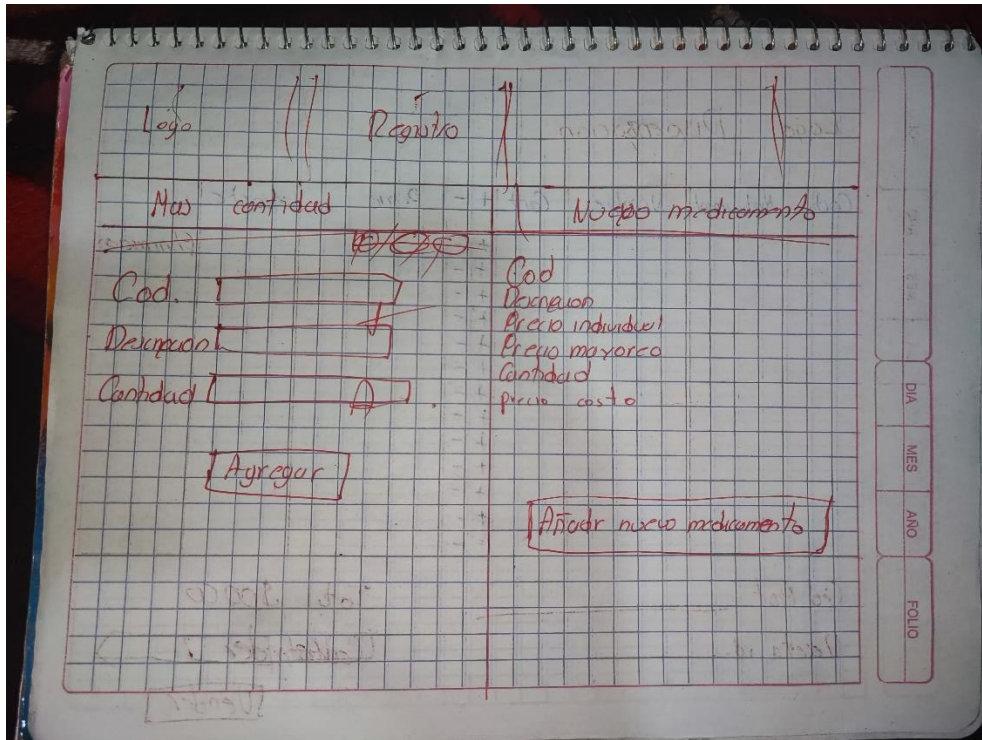 Logo Registro
Mas cantidad
Nuevo medicamento
Cod.
Descripcion
Cantidad
Agregar
Cod
Descripcion
Precio individual
Precio mayoreo
Cantidad
precio costo
Añadir nuevo medicamento
DIA
MES
AÑO
FOLIO